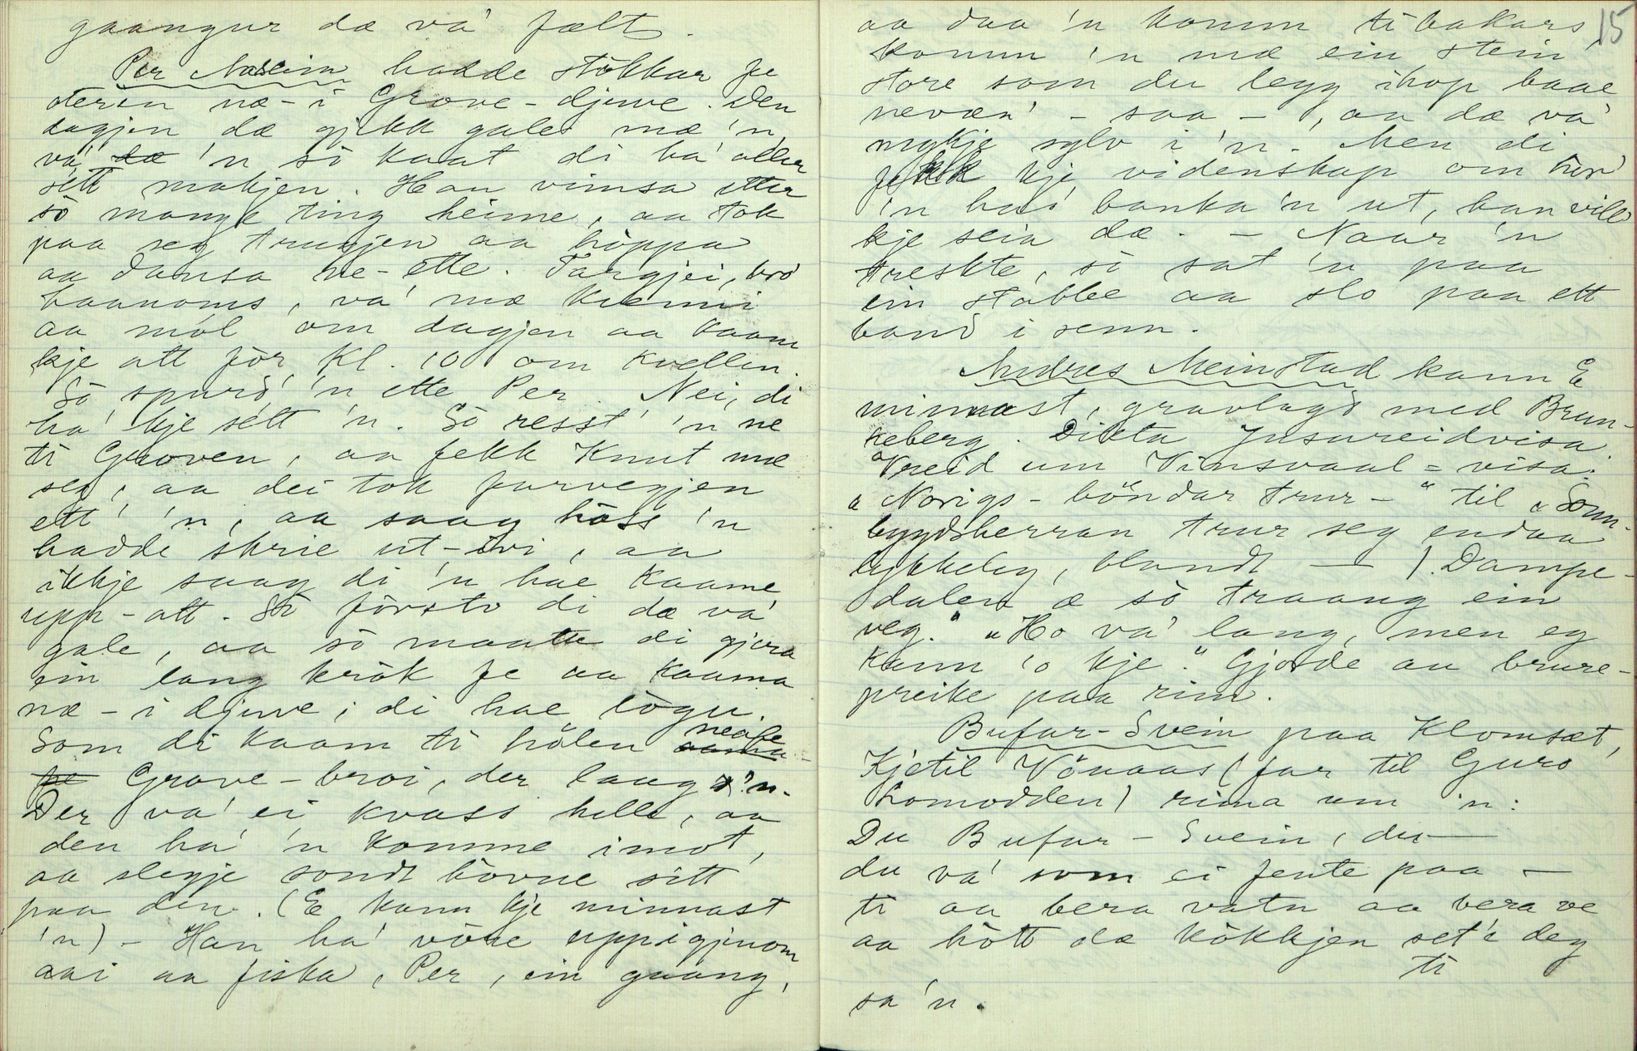 gaangur dæ va' fælt.
Per Næseim hadde stökkar fe
deren næ-i Grove-djuve. Den
dagjen dæ gjekk gale mæ 'n,
va' dæ 'n so kaat di ha' aller
sétt makjen. Han vimsa etter
so mange ting heime, aa tok
paa seg trugjen aa hoppa
aa dansa ne-ette. Targjei, bro'
baanoms, va' mæ kvenni
aa mol om dagjen aa kaam
kje att för Kl. 10 om kvellen.
So spurd' 'n ette Per. Nei, di
ha' kje sétt 'n. So resst' 'n ne
ti Groven, aa fekk Knut mæ
seg, aa dei tok farvegjen
ett' 'n, aa saag hoss 'n
hadde skrie ut-ivi, aa
ikkje saag di 'n hae kaame
upp-att. So försto di dæ va'
gale, aa so maatte di gjera
ein lang krok fe aa kaama
næ-i djuve; di hae logu.
Som di kaam ti hölen neafe
Grove-broi, der laag 'n.
Der va' ei kvass helle, aa
den ha' 'n komme imot,
aa slegje sondt hovue sitt
paa den. (E kann kje minnast
'n) - Han ha' vöre uppigjenom
aai aa fiska, Per, ein gaang,
15
aa daa 'n komm tibakars
komm 'n mæ ein stein
store som du legg ihop baae
nevan' - saa - , aa dæ va'
mykje sylv i 'n. Men di
fekk kje videnskap om hor
'n ha' banka 'n ut, han ville
kje seia dæ. - Naar 'n
treskte, so sat 'n paa
ein stabbe aa slo paa ett
band i senn.
Andres Meinstad kann E
minnast, gravlagd med Brun-
keberg. Dikta Jnsureidvisa
Vreid um Vinsvaal = visa:
"Norigs-böndar trur-" til "Sonn-
bygdsherran trur seg endaa
lykkeleg, blandt — ). Dampe-
dalen æ so traang ein
veg." "Ho va' lang, men eg
kann 'o kje." Gjorde au brure-
preike paa rim.
Bufar-Svein paa Klomsæt,
Kjetil Vönaas (far til Guro
Lomodden) rima um 'n:
Du Bufar-Svein, du —
du va' som ei jente paa —
ti aa bera vatn aa bera ve
aa hött dæ kökkjen set'e deg
ti
sa 'n.